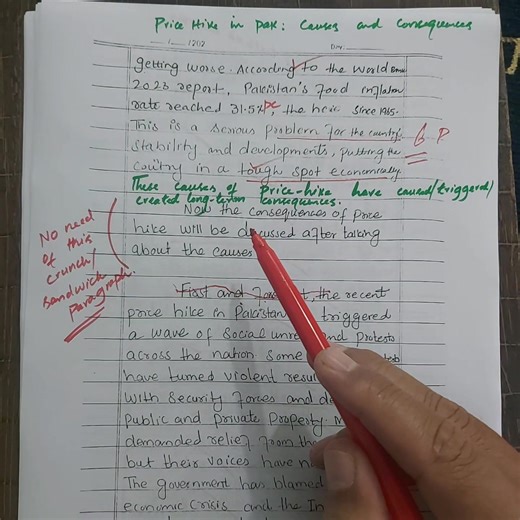 Price Hike in Pak: Causes and Consequences
getting worse. According to the World Bank
2023 report, Pakistan's food inflation
rate reached 31.5%, the heic since 1965.
This is a serous problem for the country's
stability and developments, putting the
couỹtry in a tough spot economically.
G.P
These causes of price-hike have caused/triggered/
created long-term consequences.
Now the consequences of price
hike will be discussed after talking
about the causes
No need
of this
crunch/
sandwich
paragraph.
First and the recent
price hike in Pakistan triggered
a wave of social and protests
across the nation some
have turned violent
with security forces and
Public and private Property
demanded relief from the
but their voices have
The government has blamed
economic crisis and the